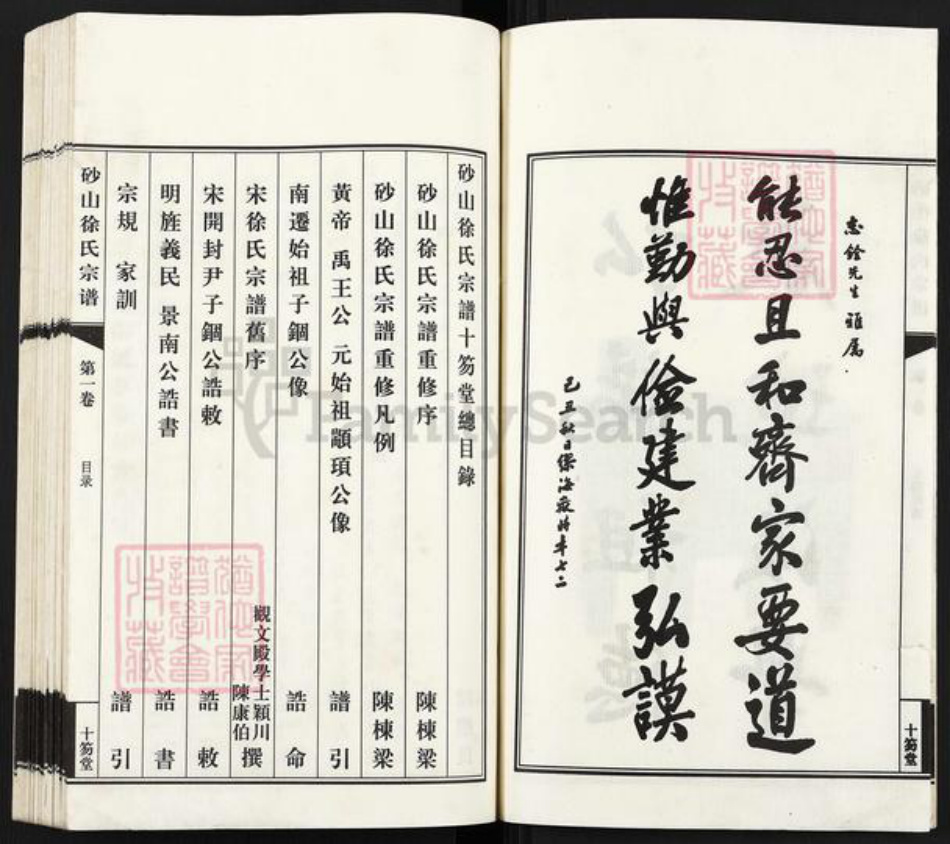 志銓先生雅屬
能忍且和齊家要道
惟勤與儉建業弘謨
己丑秋日梁海 時年七二
十笏堂
砂山徐氏宗譜十笏堂總目錄
砂山徐氏宗譜重修序 陳棟梁
砂山徐氏宗譜重修凡例 陳棟梁
黃帝 禹王公 元始祖顓頊公像 譜引
南遷始祖子錮公像 誥命
宋徐氏宗譜舊序 觀文殿學士潁川陳康伯撰
宋開封尹子錮公誥敕 誥敕
明旌義民 景南公誥書 誥書
宗規 家訓 譜引
砂山徐氏宗谱 第一卷 目录 十笏堂
猶他家譜學會收藏
猶他家譜學會收藏
FamilySearch